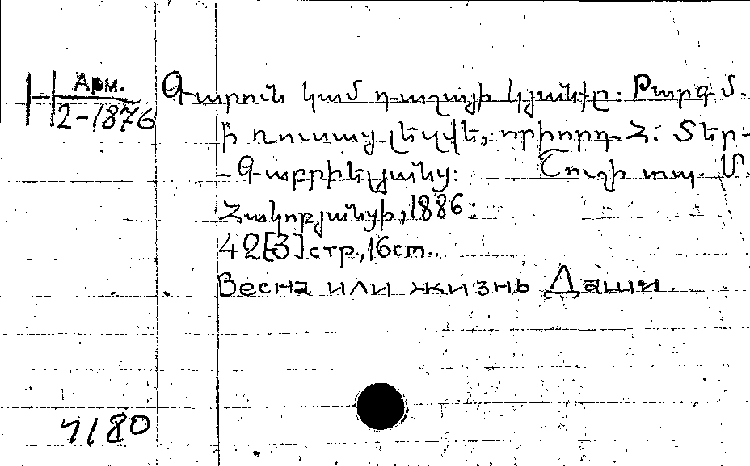 Арм.
2-1876
Գարուն կամ դաշայի կյանքը: Թարգմ.
ի ռուսաց լեզվե, օրիորդ Հ. Տեր-
-Գաբրիելյանց: Շուշի տպ. Մ.
Հակոբյանցի, 1886:
42[3] стр., 16 ст.
Весна или жизнь Даши
7180